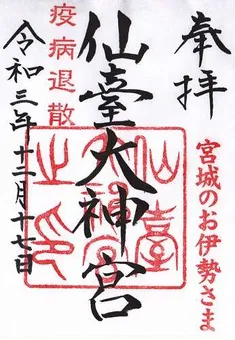 奉拝
宮城のお伊勢さま
仙臺大神宮
仙臺大神宮之印
疫病退散
令和三年十二月十七日